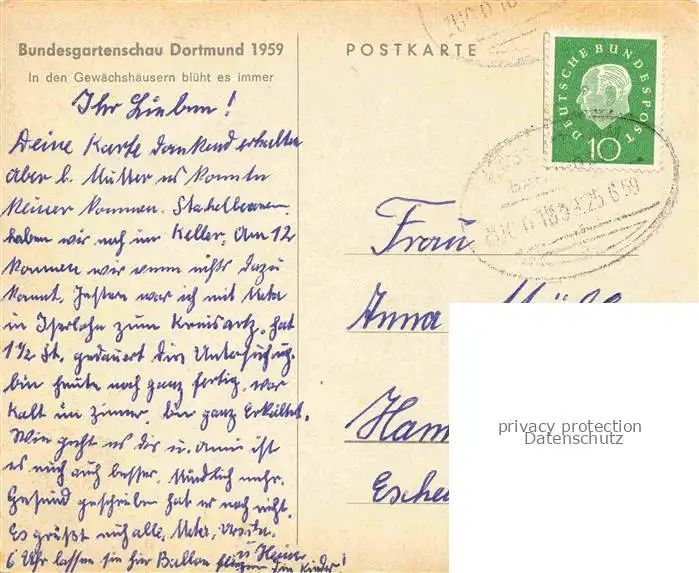 Bundesgartenschau Dortmund 1959
In den Gewächshäusern blüht es immer
POSTKARTE
DEUTSCHE BUNDESPOST
10
ZUG 0183
25 6 59
Ihr Lieben!
Deine Karte dankend erhalten
aber b. Mutter es konnte
keiner kommen. Stachelbeeren
haben wir noch im Keller. Am 12
kommen wir wenn nichts dazu
kommt. Gestern war ich mit Meta
in Iserlohn zum Kreisartz, hat
1 1/2 St. gedauert die Untersuchung
bin heute noch ganz fertig, war
kalt im Zimmer, bin ganz Erkältet.
Wie geht es dir u. Anni ist
es auch besser. Mündlich mehr.
Gesund geschrieben hat er noch nicht.
Es grüßt euch alle, Meta,
u Heiner
6 Uhr lassen sie hier Ballon fliegen die Kinder!
Frau
Anna
Ham
Esche
privacy protection
Datenschutz